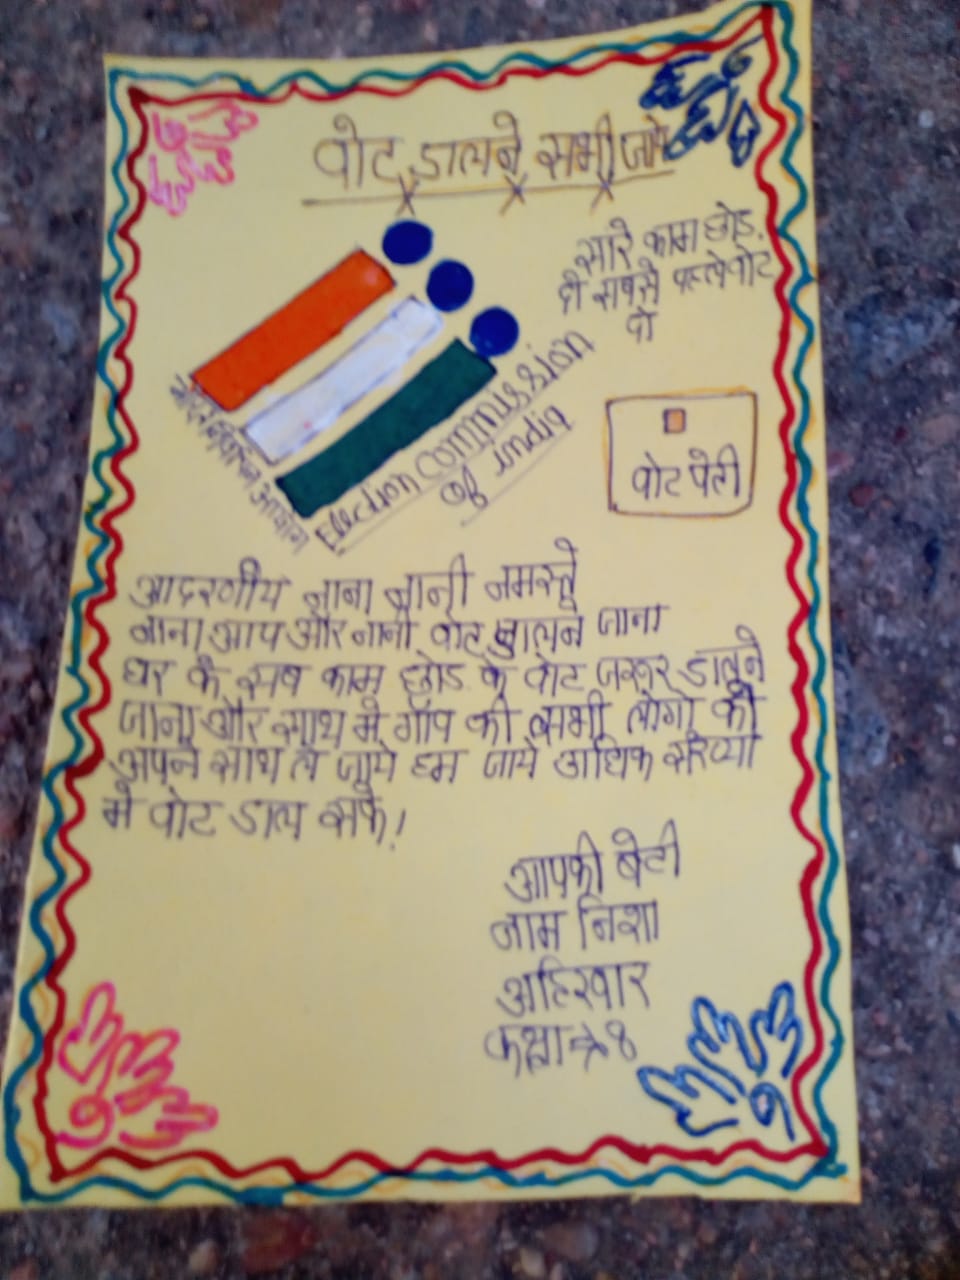 वोट डालने सभी जाये
सारे काम छोड़
दो सबसे पहले वोट
दो
भारत निर्वाचन आयोग
Election commission
of india
वोट पेटी
आदरणीय नाना नानी नमस्ते
नाना आप और नानी वोट डालने जाना
घर के सब काम छोड के वोट जरूर डालने
जाना और साथ मे गॉव की सभी लोगो को
अपने साथ ले जाये हम जाये अधिक संख्या
मे वोट डाल सके!
आपकी बेटी
नाम निशा
अहिरवार
कक्षा → 8